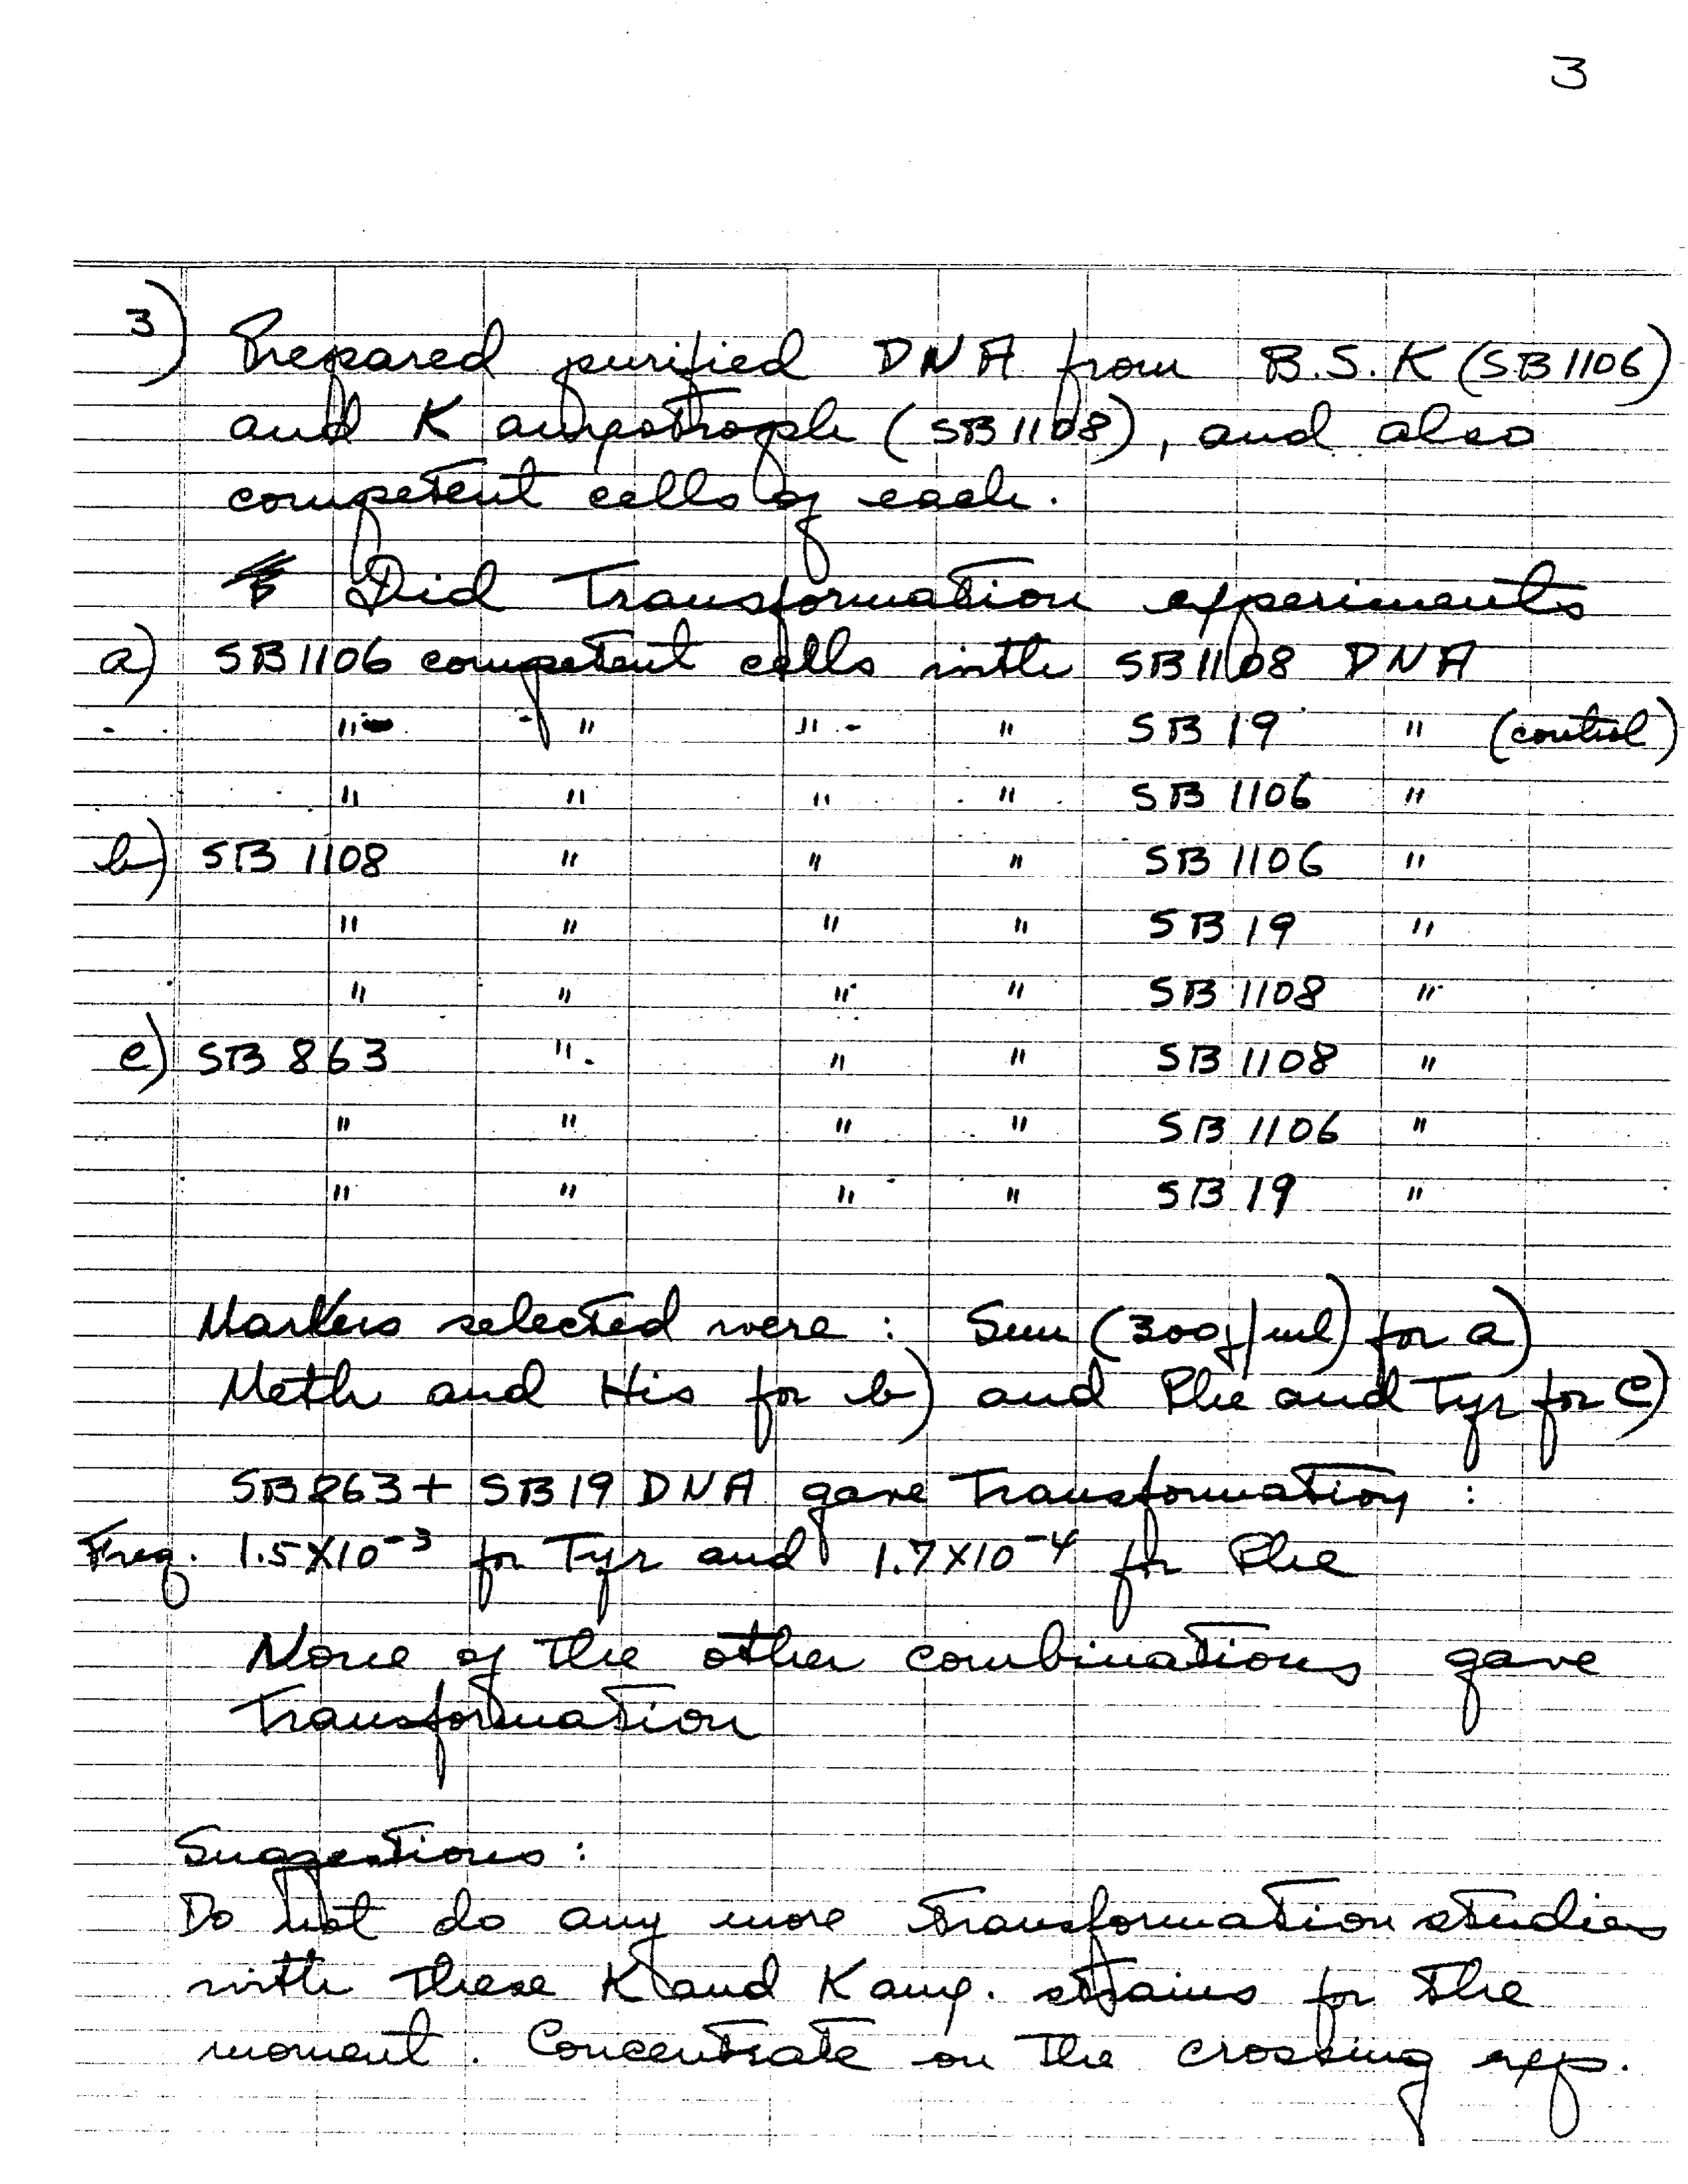 3
3) Prepared purified DNA from B.S.K (SB1106)
and K auxotroph (SB1108), and also
competent cells of each.
Did Transformation experiments
a) SB1106 competent cells with SB1108 DNA
" " " " SB 19 " (control)
" " " " SB 1106 "
b) SB 1108 " " " SB 1106 "
" " " " SB 19 "
" " " " SB 1108 "
c) SB 863 " " " SB 1108 "
" " " " SB 1106 "
" " " " SB 19 "
Markers selected were : Sm (300γ/ml) for a)
Meth and His for b) and Phe and Tyr for c)
SB863 + SB19 DNA gave Transformation :
Freq. 1.5X10⁻³ for Tyr and 1.7X10⁻⁴ for Phe
None of the other combinations gave
Transformation
Suggestions :
Do not do any more transformation studies
with these K and K aux. strains for the
moment. Concentrate on the crossing exp.